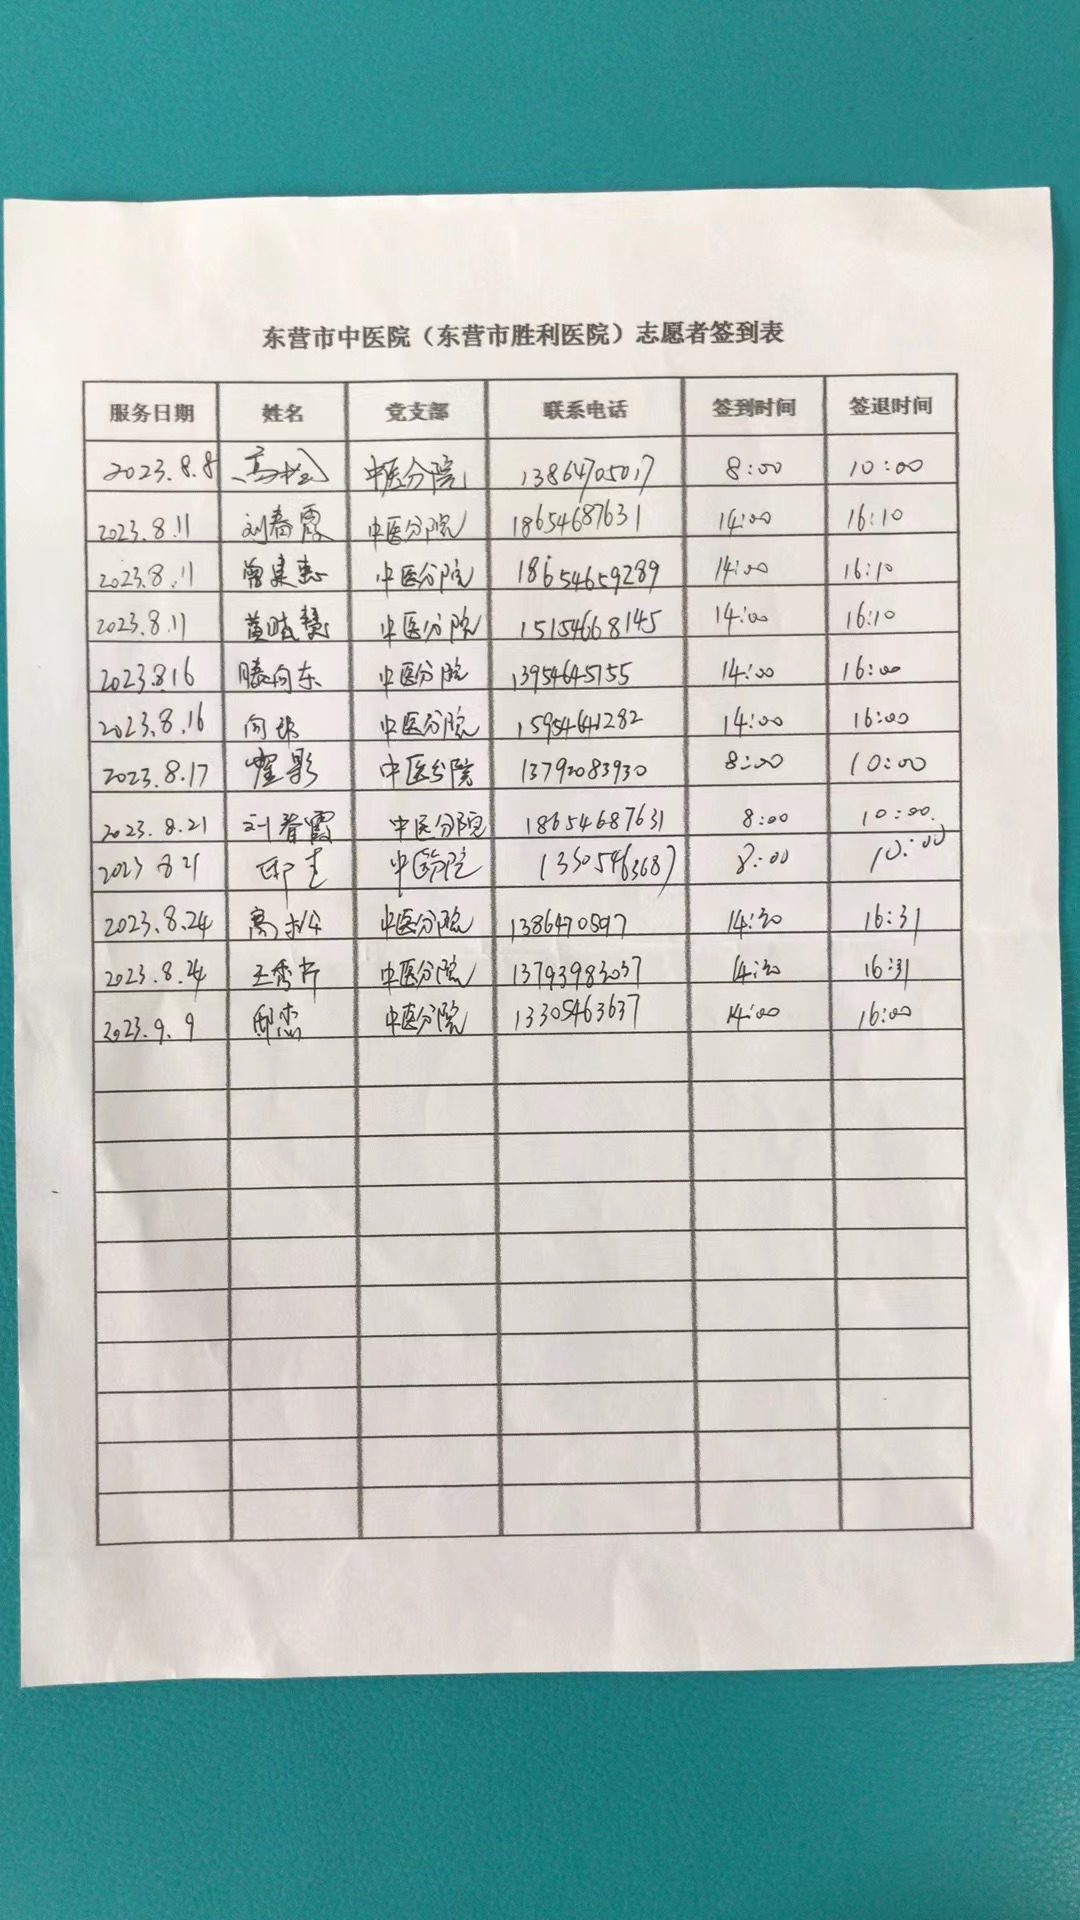 东营市中医院（东营市胜利医院）志愿者签到表
服务日期 姓名 党支部 联系电话 签到时间 签退时间
2023.8.8 高松 中医分院 13864705017 8:00 10:00
2023.8.11 刘春霞 中医分院 18654687631 14:00 16:10
2023.8.11 中医分院 18654659289 14:00 16:10
2023.8.11 黄晓慧 中医分院 15154668145 14:00 16:10
2023.8.16 滕向东 中医分院 13954645755 14:00 16:00
2023.8.16 中医分院 15954641282 14:00 16:00
2023.8.17 霍影 中医分院 13792083930 8:00 10:00
2023.8.21 刘春霞 中医分院 18654687631 8:00 10:00.
2023 8 21 中医分院 8:00 10:00
2023.8.24 高松 中医分院 14:30 16:31
2023.8.24 王秀芹 中医分院 13793983037 14:30 16:31
2023.9.9 邸杰 中医分院 13305463637 14:00 16:00